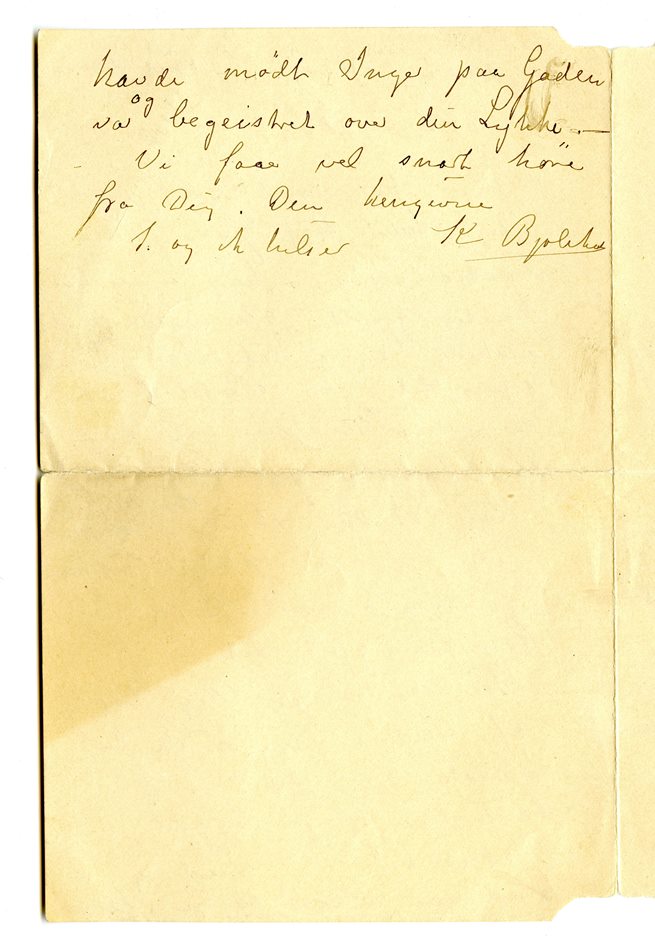 havde mødt Inger paa Gaden
og
var begeistret over din Lykke. —
- Vi faar vel snart høre
fra Dig. Din hengivne
S. og M hilser K